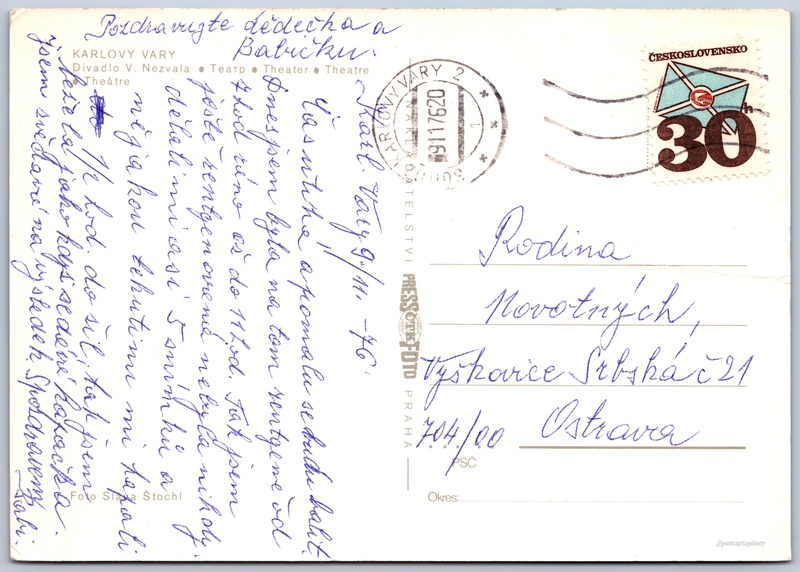 Pozdravujte dědečka a
Babičku.
KARLOVY VARY
Divadlo V. Nezvala ● Театр ● Theater ● Theatre
● Théâtre
Karl. Vary 9./11. -76.
Čas utíká a pomalu se budu balit.
Dnes jsem byla na tom rentgene od
7 hod ráno až do 11 hod. Tak jsem
ještě rentgenovená nebyla nikdy.
dělali mi asi 5 snímků a
nějakou tekutinu mi kapali
1/2 hod. do žil, tak jsem
ležela jako když se dává kapačka.
Jsem zvědavá na výsledek. S pozdravem
Babi.
Foto Slava Štochl
PRESSFOTO
ČTK
PRAHA
KARLOVY VARY 2
-9.11.76-20
1
ČESKOSLOVENSKO
30h
Rodina
Novotných,
Výškovice Srbská č 21
704/00 Ostrava
PSČ
Okres: